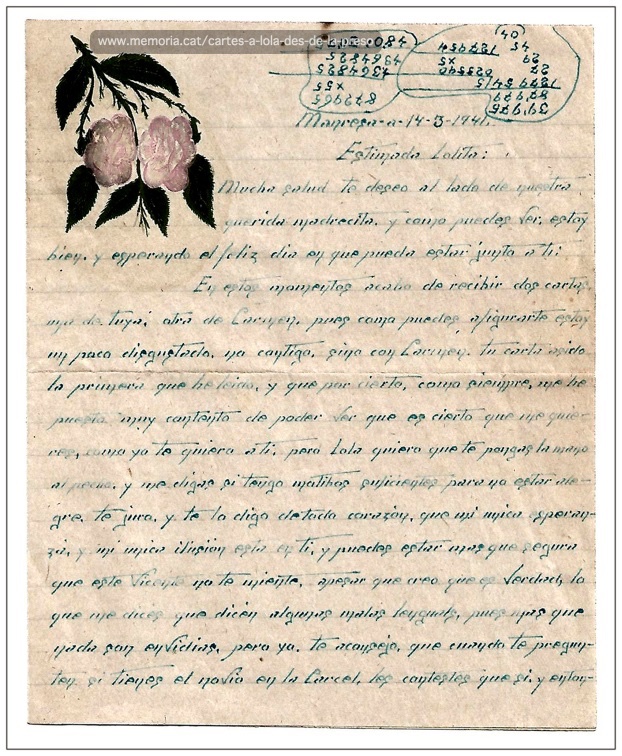 www.memoria.cat/cartes-a-lola-des-de-la-preso
Manresa-a-14-3-1941.
Estimada Lolita:
Mucha salud te deseo al lado de nuestra
querida madrecita. y como puedes ver, estoy
bien. y esperando el feliz dia en que pueda estar junto a ti:
En estos momentos acabo de recibir dos cartas
una de tuya; otra de Carmen, pues como puedes afigurarte estoy
un poco disgustado, no contigo, sino con Carmen. tu carta asido
la primera que he leido, y que por cierto, como siempre, me he
puesto muy contento de poder ver que es cierto que me quie-
res, como yo te quiero a ti. pero Lola quiero que te pongas la mano
al pecho. y me digas si tengo motibos suficientes para no estar ale-
gre. te juro, y te lo digo detodo corazón, que mi unica esperan-
za, y mi unica ilusion esta en ti, y puedes estar mas que segura
que este Vicente no te miente, apesar que creo que es verdad, lo
que me dices que dicen algunas malas lenguas, pues mas que
nada son envidias, pero yo, te aconsejo, que cuando te pregun-
ten si tienes el novio en la Carcel, les contestes que si. y enton-